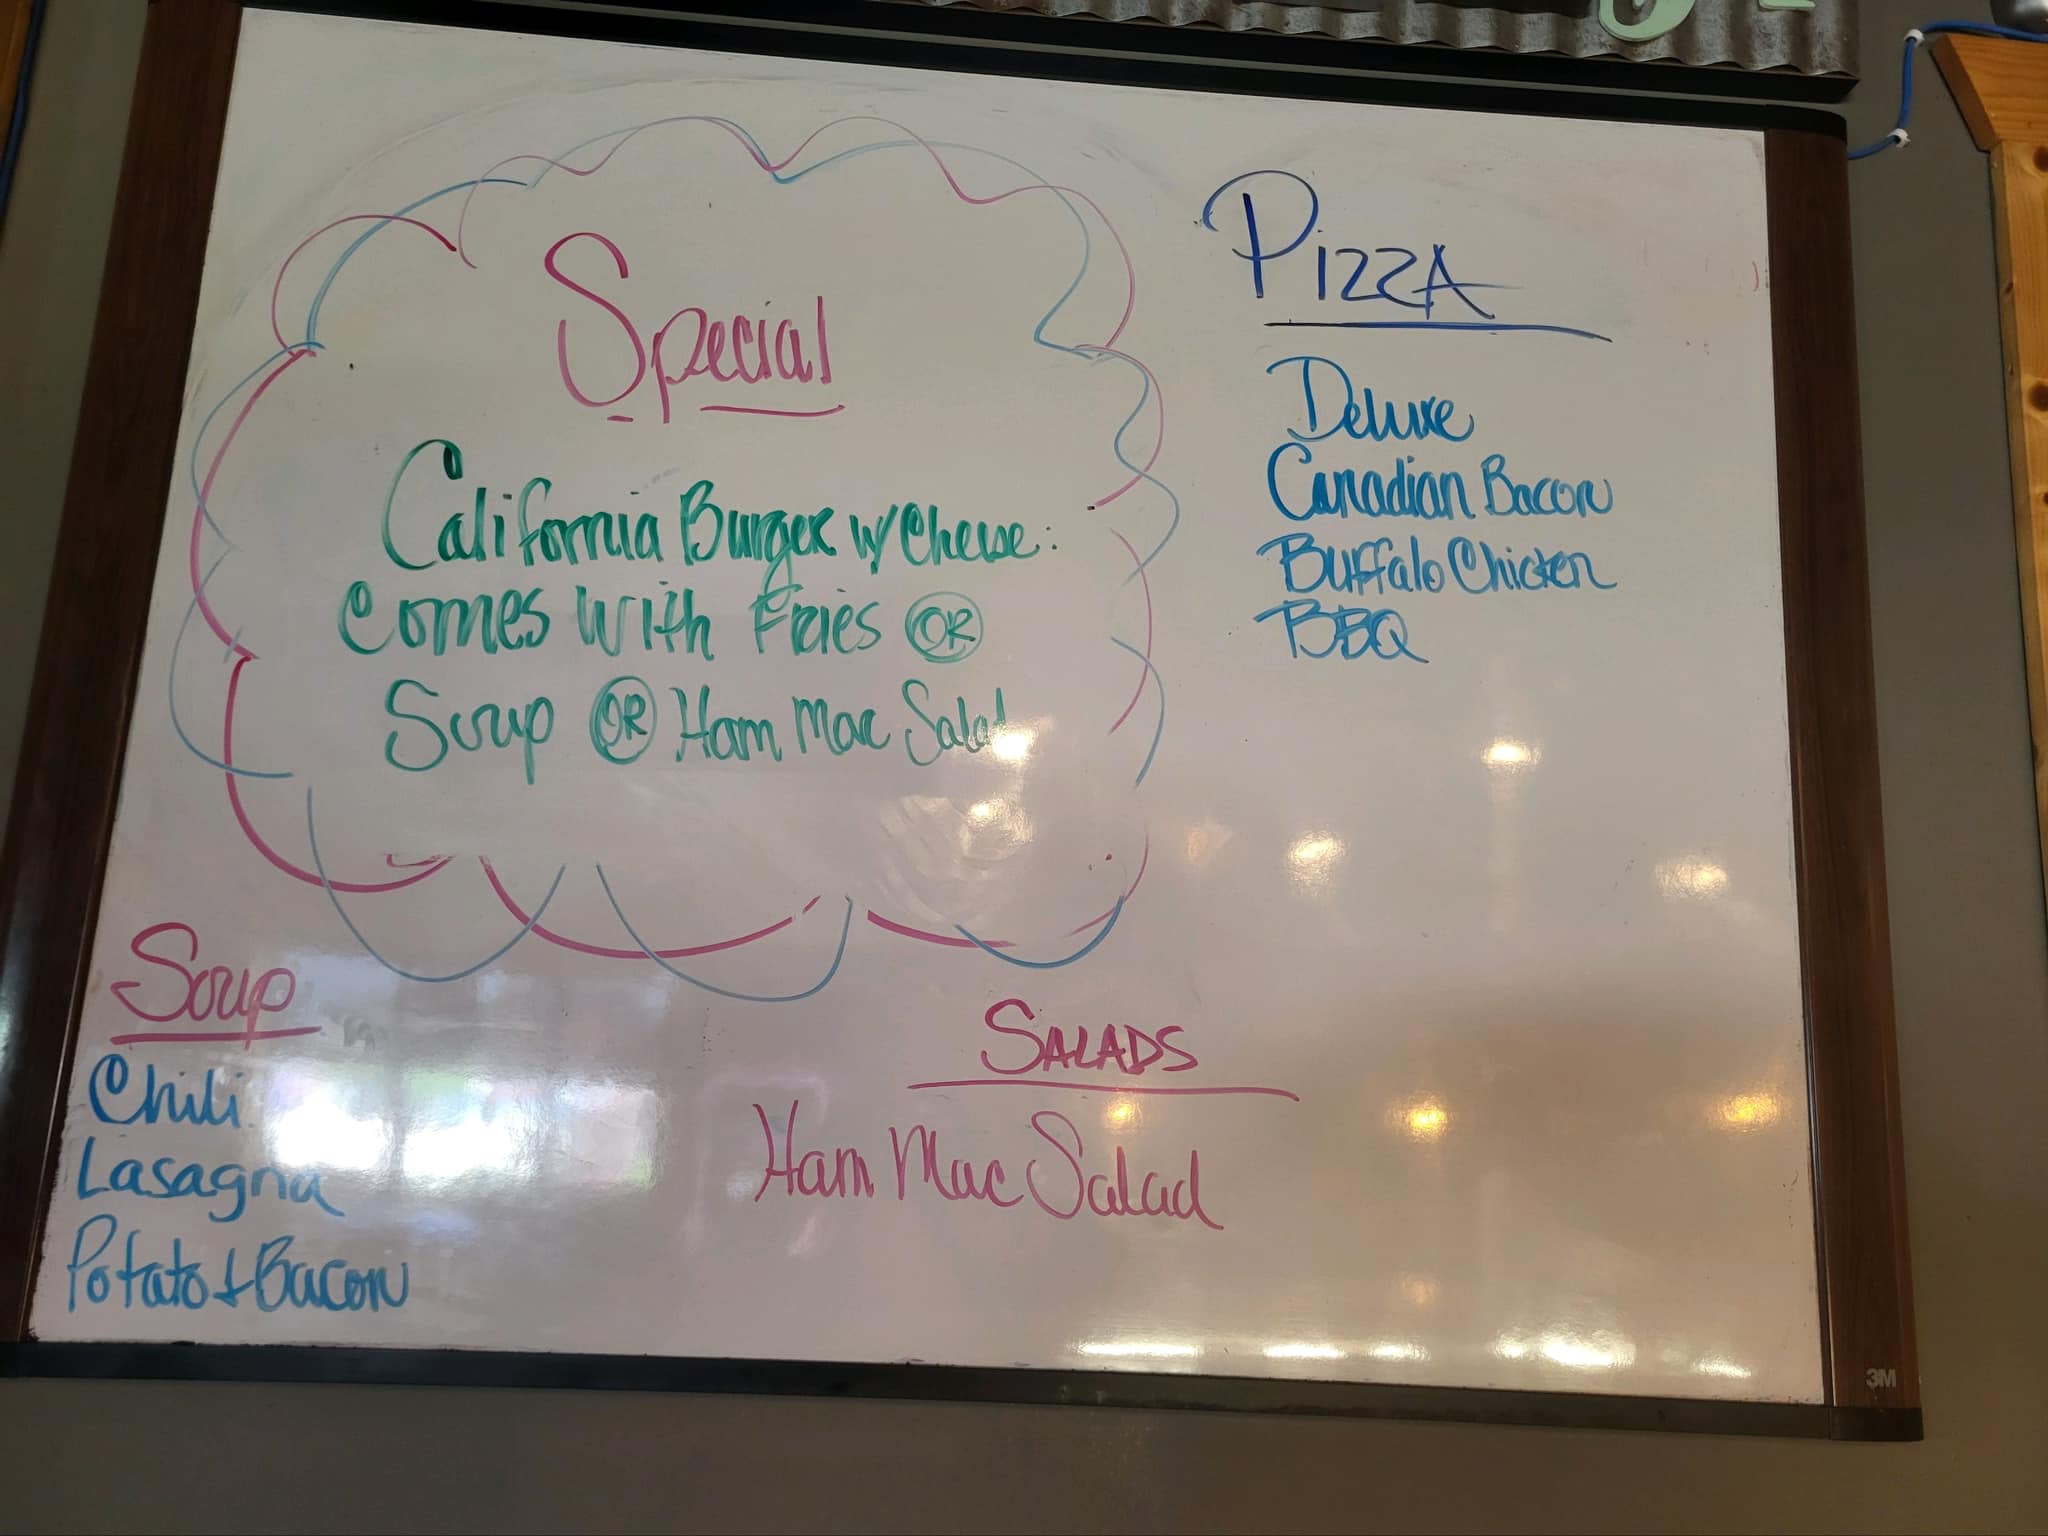 Special
California Burger w/ Cheese:
Comes With Fries OR
Soup OR Ham Mac Salad
PIZZA
Deluxe
Canadian Bacon
Buffalo Chicken
BBQ
Soup
Chili
Lasagna
Potato & Bacon
SALADS
Ham Mac Salad
3M